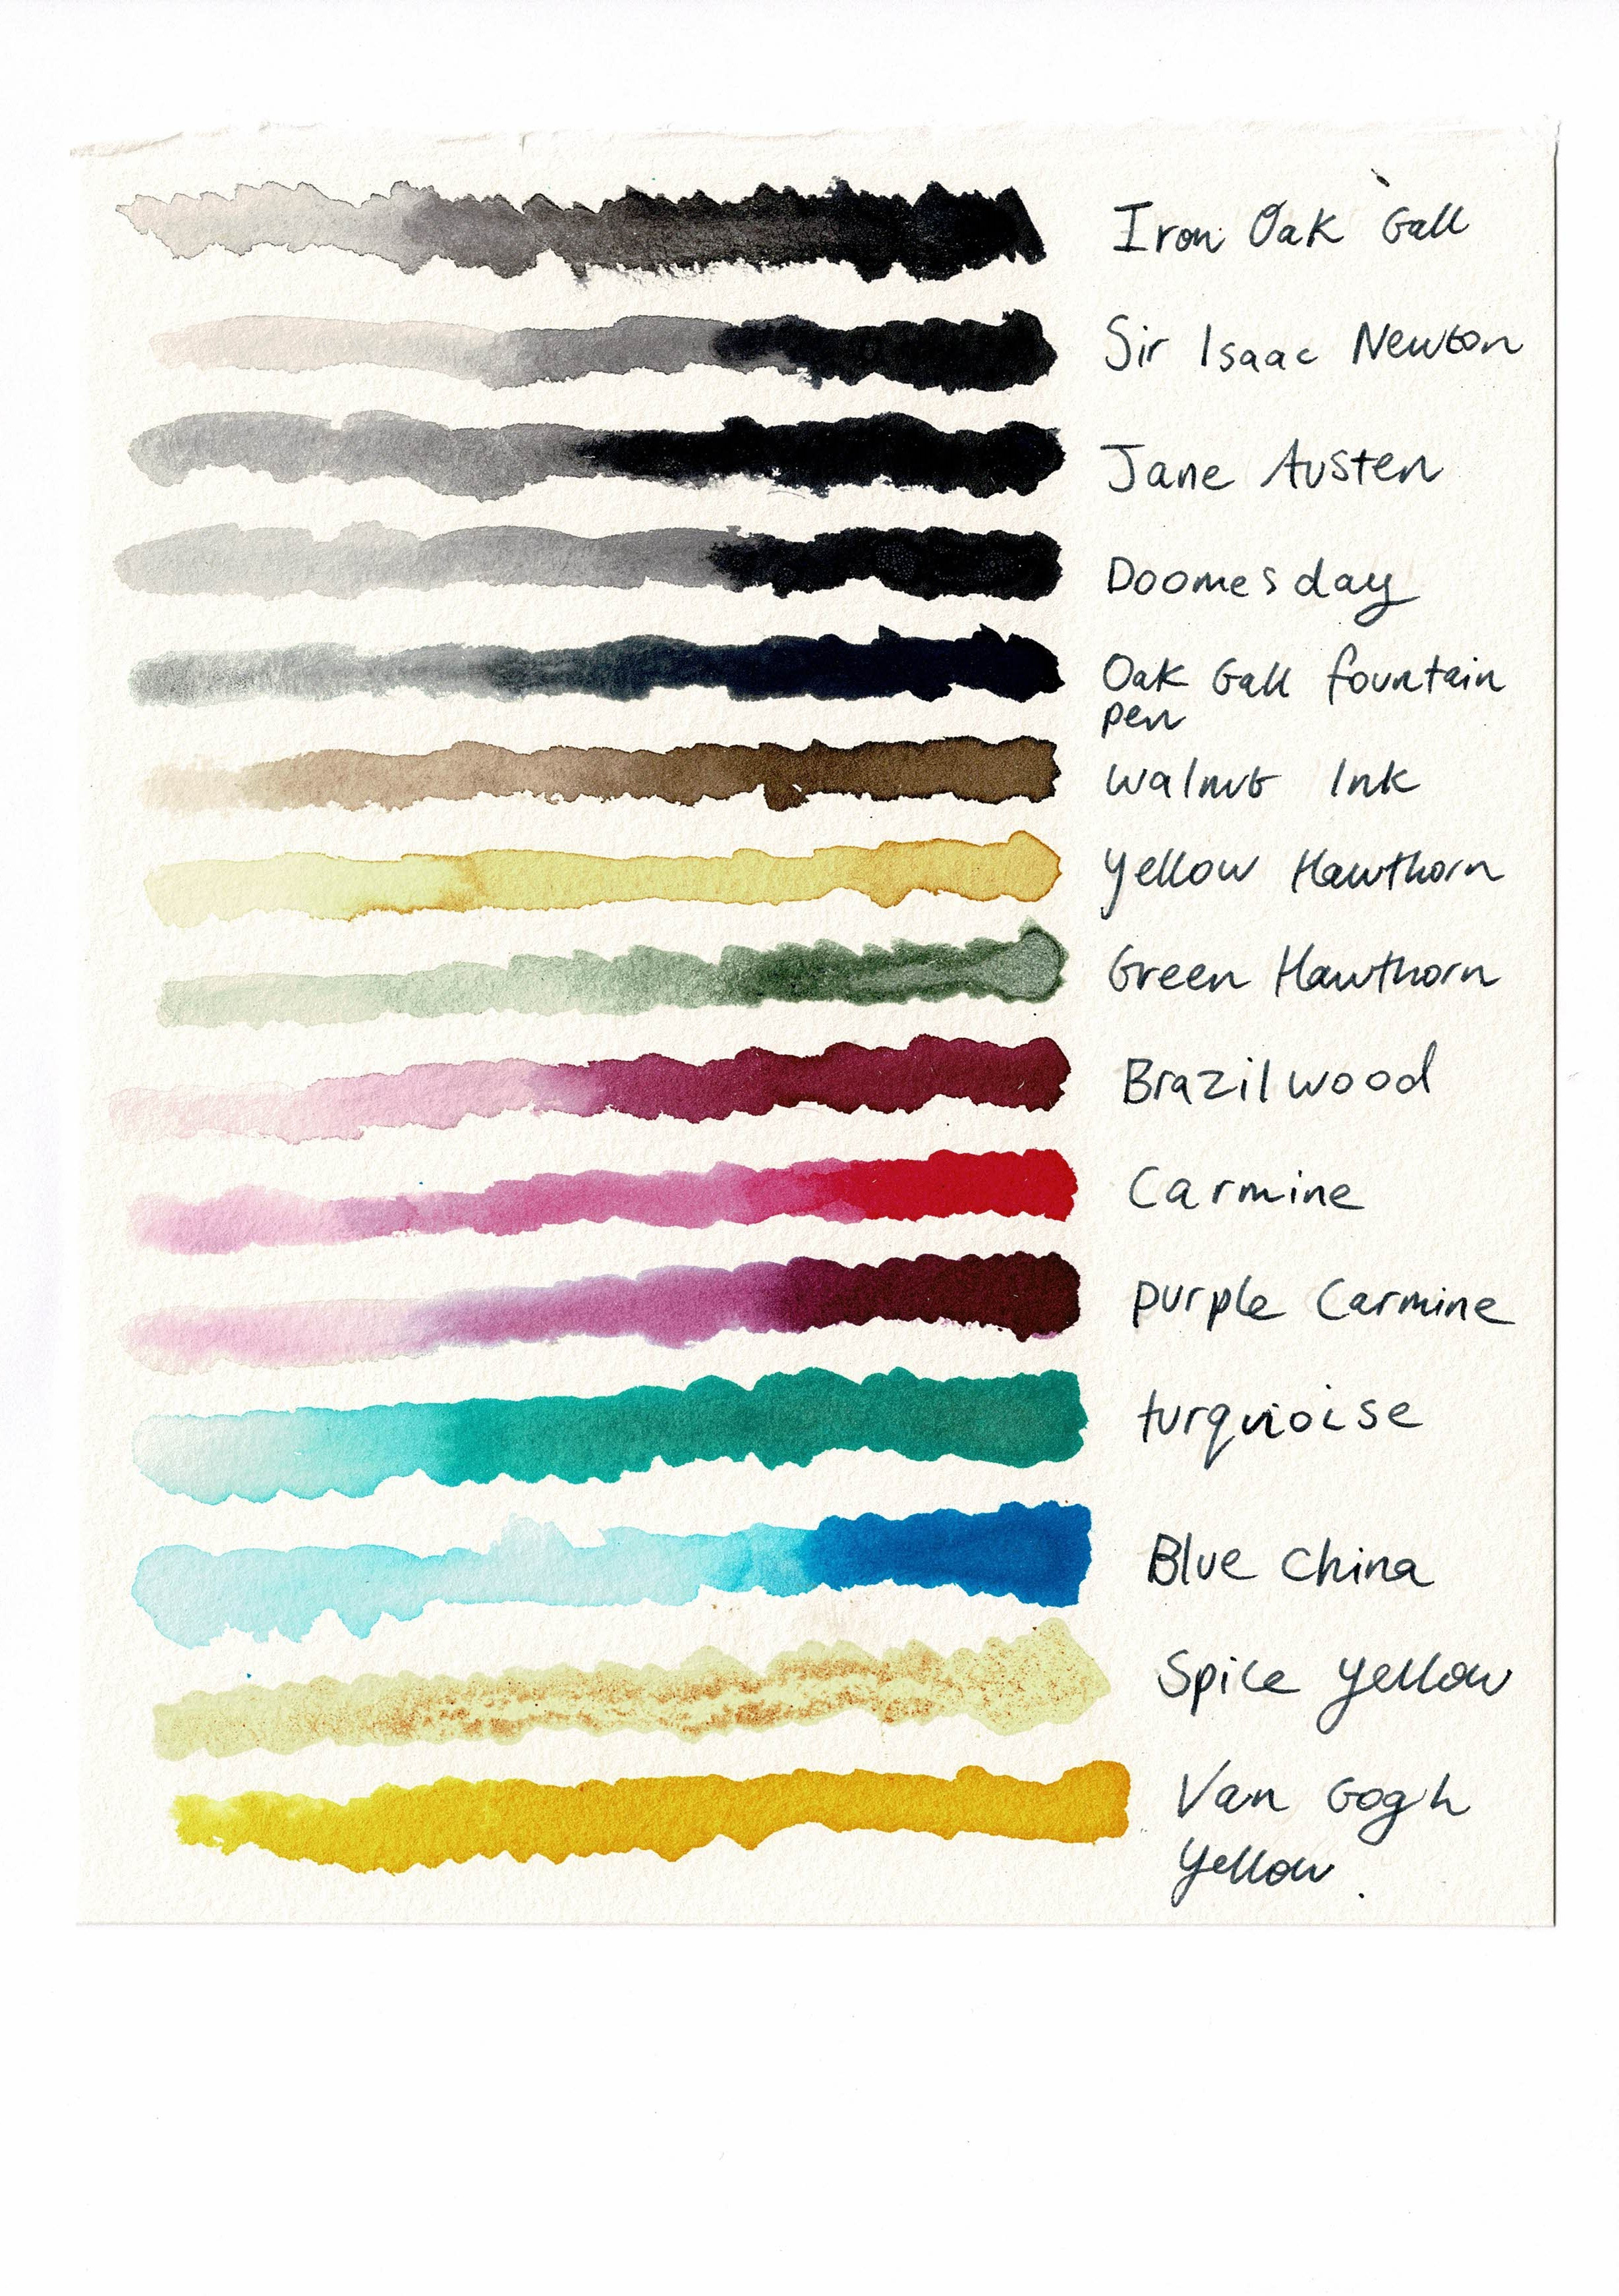 Iron Oak Gall
Sir Isaac Newton
Jane Austen
Doomesday
Oak Gall fountain
pen
Walnut Ink
Yellow Hawthorn
Green Hawthorn
Brazilwood
Carmine
purple Carmine
turquioise
Blue China
Spice Yellow
Van Gogh
Yellow